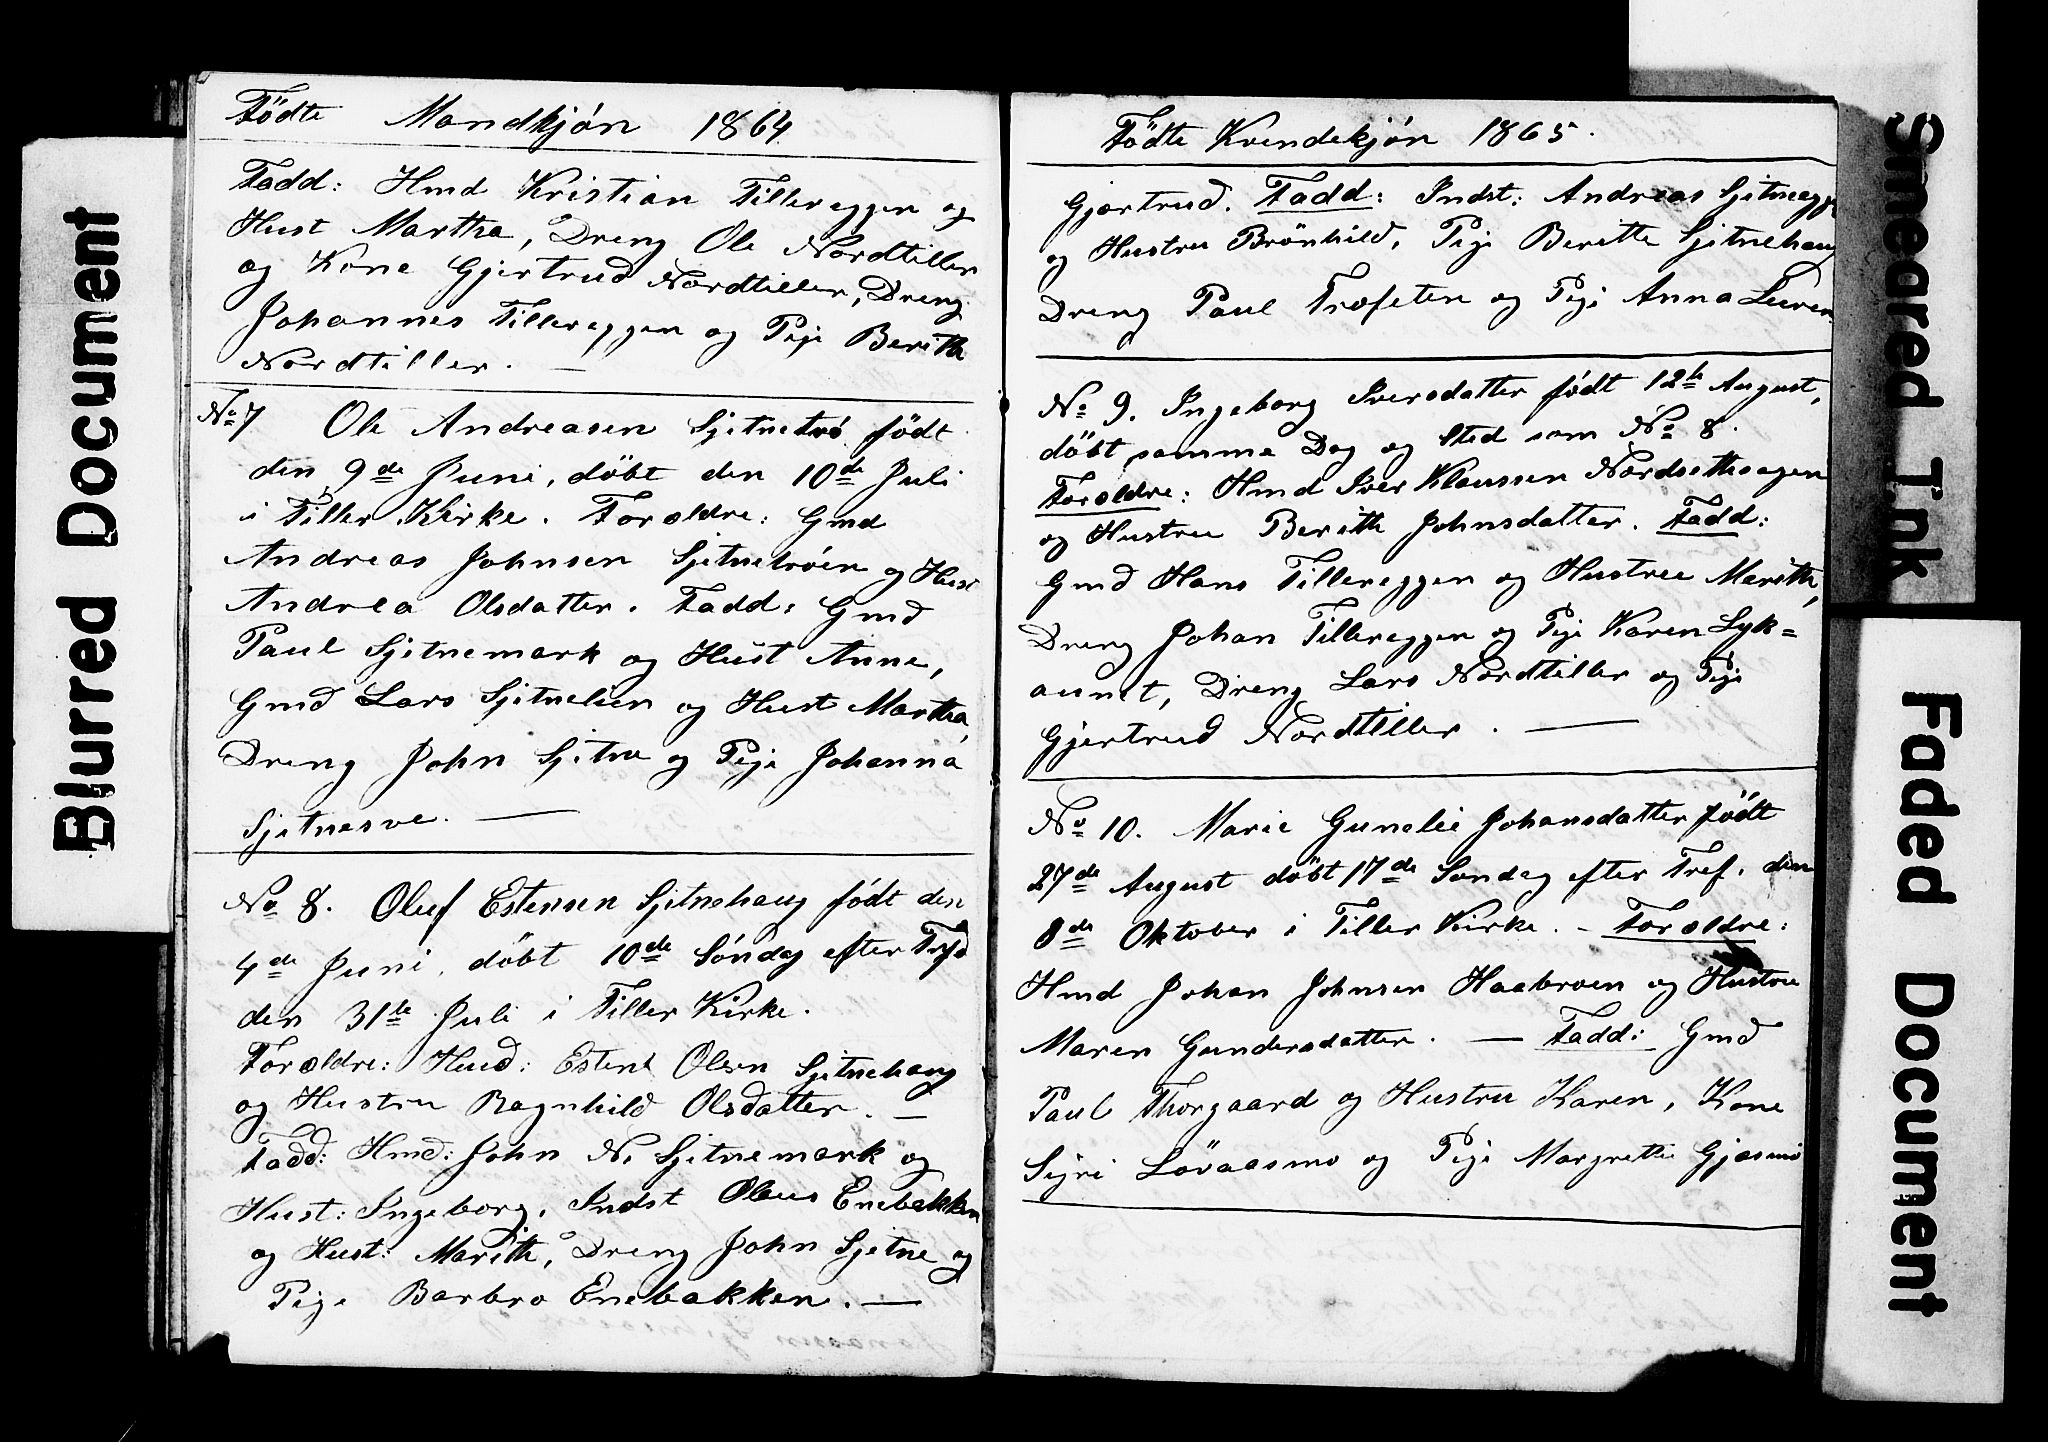 Födte Mandkjón 1864
Fadd: Hmd Kristian Tillereggen og
Hust Martha, Dreng Ole Nordtiller
og Kone Gjertrud Nordtiller, Dreng
Johannes Tillereggen og Pige Berith
Nordtiller. —
No 7 Ole Andreasen Sjetnetró födt
den 9de Juni, döbt den 10de Juli
i Tiller Kirke. Forældre: Gmd
Andreas Johnsen Sjetnetróen og Hust
Andrea Olsdatter. Fadd: Gmd
Paul Sjetnemark og Hust Anne,
Gmd Lars Sjetnelien og Hust Martha
Dreng John Sjetne og Pige Johanna
Sjetnesve. —
No 8. Oluf Estensen Sjetnehaug födt den
4de Juni, döbt 10de Söndag efter Trefd
den 31te Juli i Tiller Kirke.
Forældre: Husd: Esten Olsen Sjetnehaug
og Hustru Ragnhild Olsdatter. —
Fadd: Hmd: John N. Sjetnemark og
Hust: Ingeborg, Indst Olaus Enebakken
og Hust: Marith, Dreng John Sjetne og
Pige Barbro Enebakken. —
Födte Kvindekjón 1865.
Gjærtrud. Fadd: Indst: Andreas Sjetneegge
og Hustru Brönhild, Pige Beritte Sjetnehaug
Dreng Paul Trofeten og Pige Anna Leeren
No 9. Ingeborg Iversdatter födt 12te August,
döbt samme Dag og Sted som No 8.
Forældre: Hmd Iver Klaussen Nordsethaagen
og Hustru Berith Johnsdatter. Fadd:
Gmd Hans Tillereggen og Hustru Marith,
Dreng Johan Tillereggen og Pige Karen Lyk=
aunet, Dreng Lars Nordtiller og Pige
Gjertrud Nordtiller. —
No 10. Marie Gunelie Johansdatter födt
27de August döbt 17de Søndag efter Tref. den
8de Oktober i Tiller Kirke. – Forældre:
Hmd Johan Johnsen Haabroen og Hustru
Maren Gundersdatter. — Fadd: Gmd
Paul Thorgaard og Hustru Karen, Kone
Siri Lövaasmo og Pige Margrette Gjæsmo
Blurred Document
Smeared Ink
Faded Document